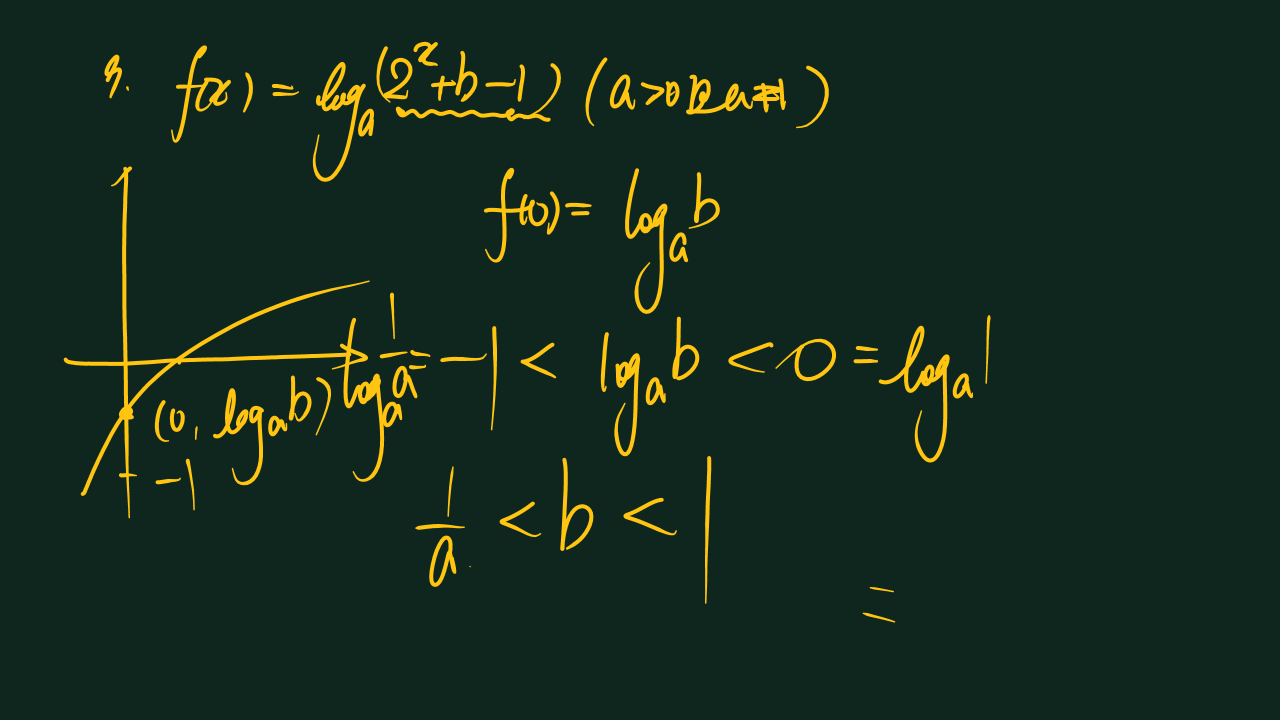 3. f(x) = log_a(2^x+b-1) (a>0且a≠1)
f(0)= log_a b
log_a 1/a = -1 < log_a b < 0 = log_a 1
(0, log_a b)
-1
1/a < b < 1
=